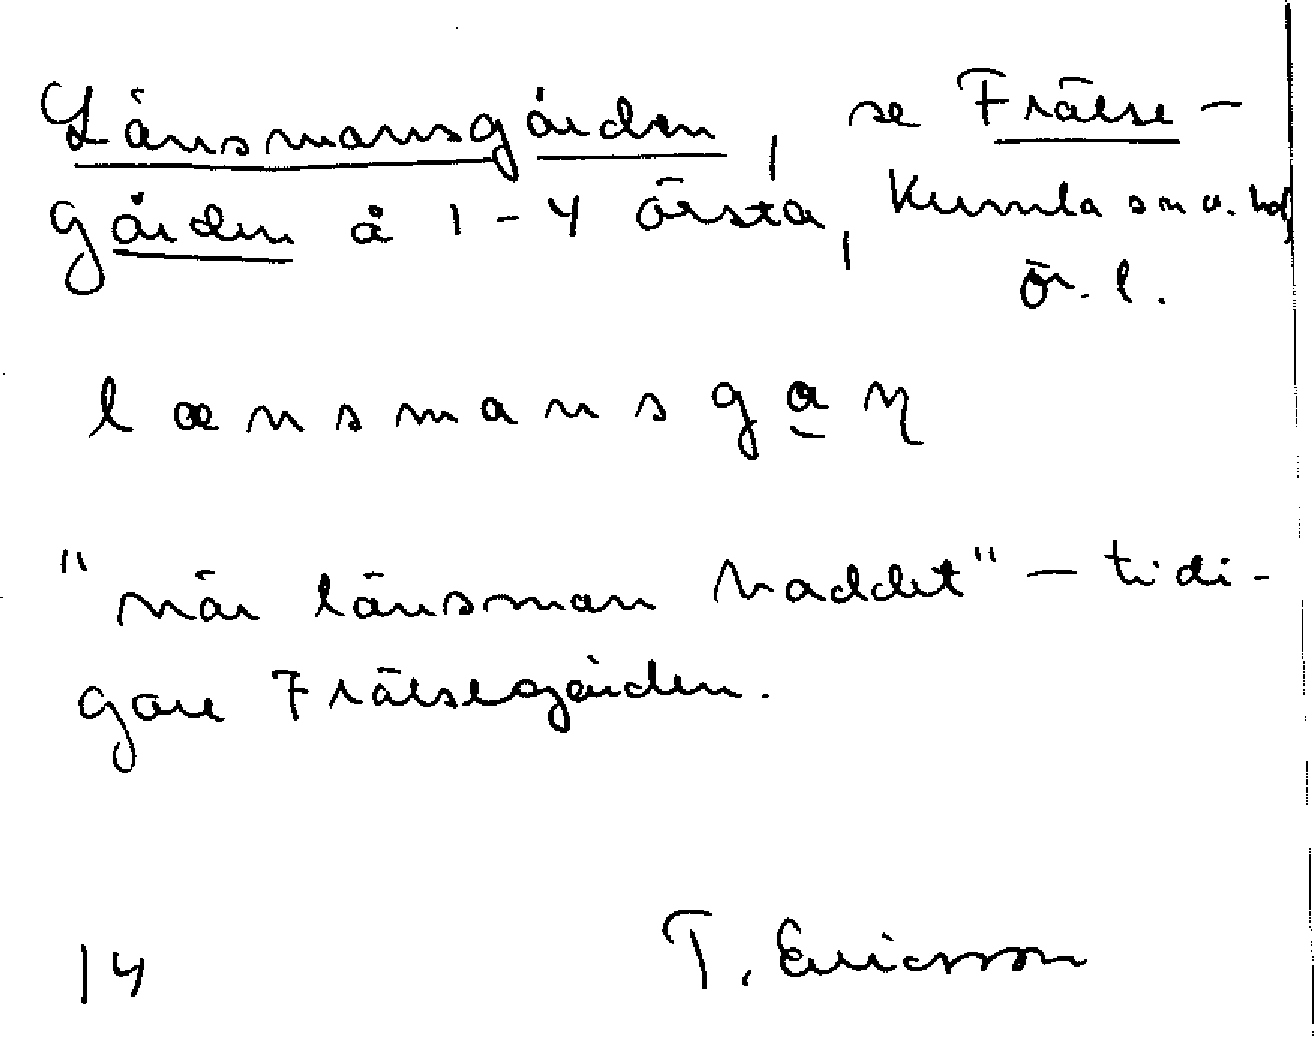 Länsmansgården, se Frälse-
gården å 1-4 Örsta, Kumla sn o. hd
Ör. l.
lænsmansgaɳ
"när länsman haddet" – tidi-
gare Frälsegården.
14 T. Ericsson